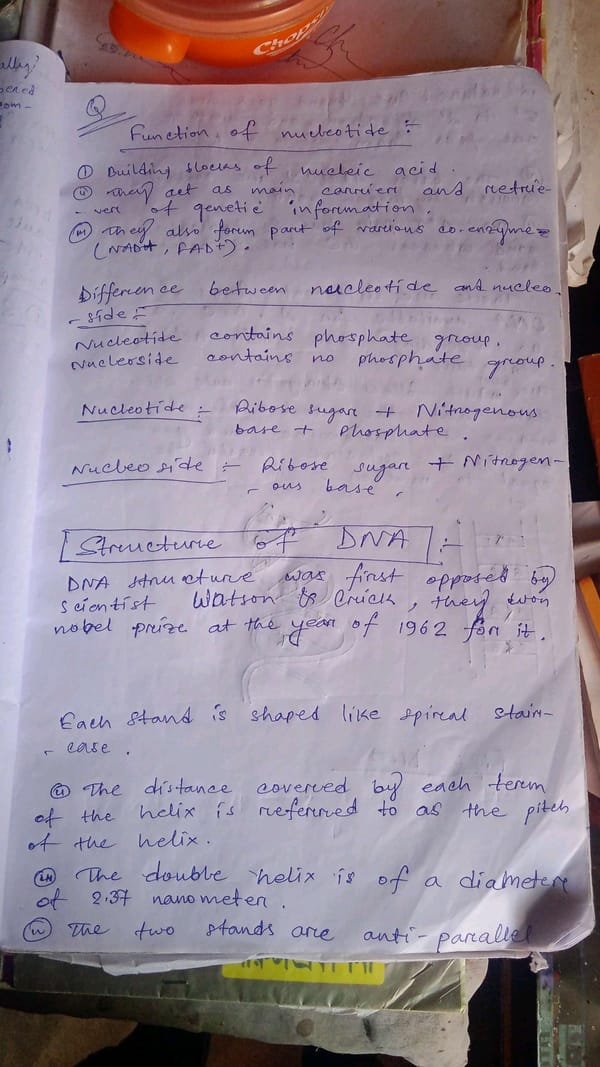 Chops
ally?
pered
om-
Q
Function of nucleotide :-
(i) Building blocks of nucleic acid.
(ii) They act as main carrier and retrie-
- ver of genetic information.
(iii) They also form part of various co-enzymes
(NAD+, FAD+).
Difference between nucleotide and nucleo
- side :-
Nucleotide contains phosphate group.
Nucleoside contains no phosphate group.
Nucleotide :- Ribose sugar + Nitrogenous
base + Phosphate.
Nucleoside :- Ribose sugar + Nitrogen-
- ous base.
Structure of DNA :-
DNA structure was first opposed by
scientist Watson & Crick, they won
nobel prize at the year of 1962 for it.
Each stand is shaped like spiral stair-
- case.
(ii) The distance covered by each term
of the helix is referred to as the pitch
of the helix.
(iii) The double helix is of a diameter
of 2.37 nanometer.
(iv) The two stands are anti-parallel